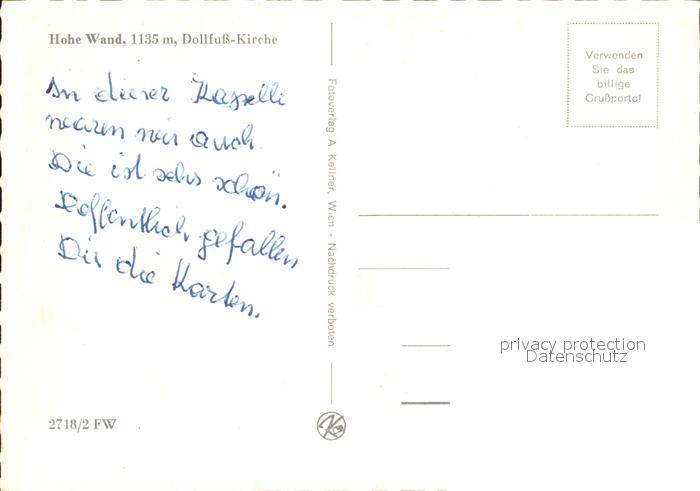 Hohe Wand, 1135 m, Dollfuß-Kirche
In dieser Kapelle
waren wir auch.
Die ist sehr schön.
Hoffentlich gefallen
Dir die Karten.
2718/2 FW
Fotoverlag A. Kellner, Wien - Nachdruck verboten
Verwenden
Sie das
billige
Grußporto!
privacy protection
Datenschutz